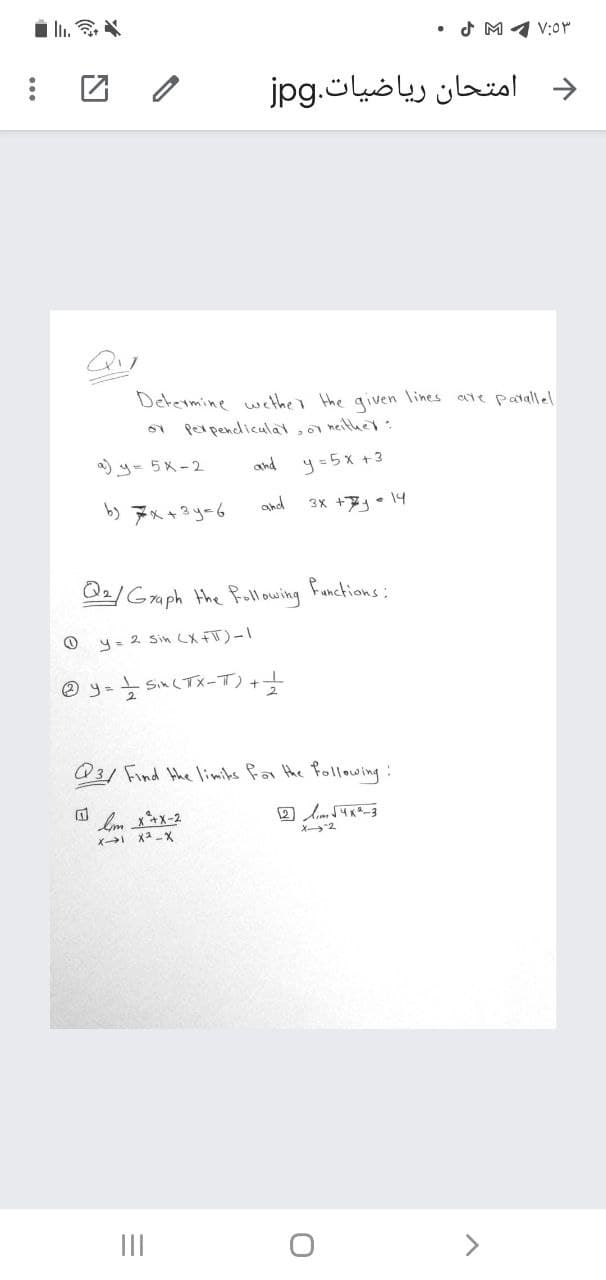 ٧:٥٣
امتحان رياضيات.jpg
Q1/
Determine wether the given lines are parallel
or perpendicular, or neither:
a) y = 5x-2 and y = 5x +3
b) 7x+3y=6 and 3x +7y = 14
Q2/ Graph the following functions:
① y = 2 sin (x+π)-1
② y = 1/2 sin (πx-π) + 1/2
Q3/ Find the limits for the following:
1 lim x→1 x²+x-2 / x²-x
2 lim x→-2 √4x²-3